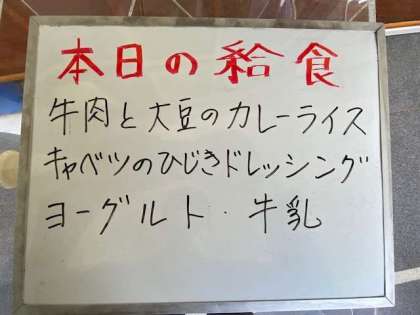 本日の給食
牛肉と大豆のカレーライス
キャベツのひじきドレッシング
ヨーグルト・牛乳